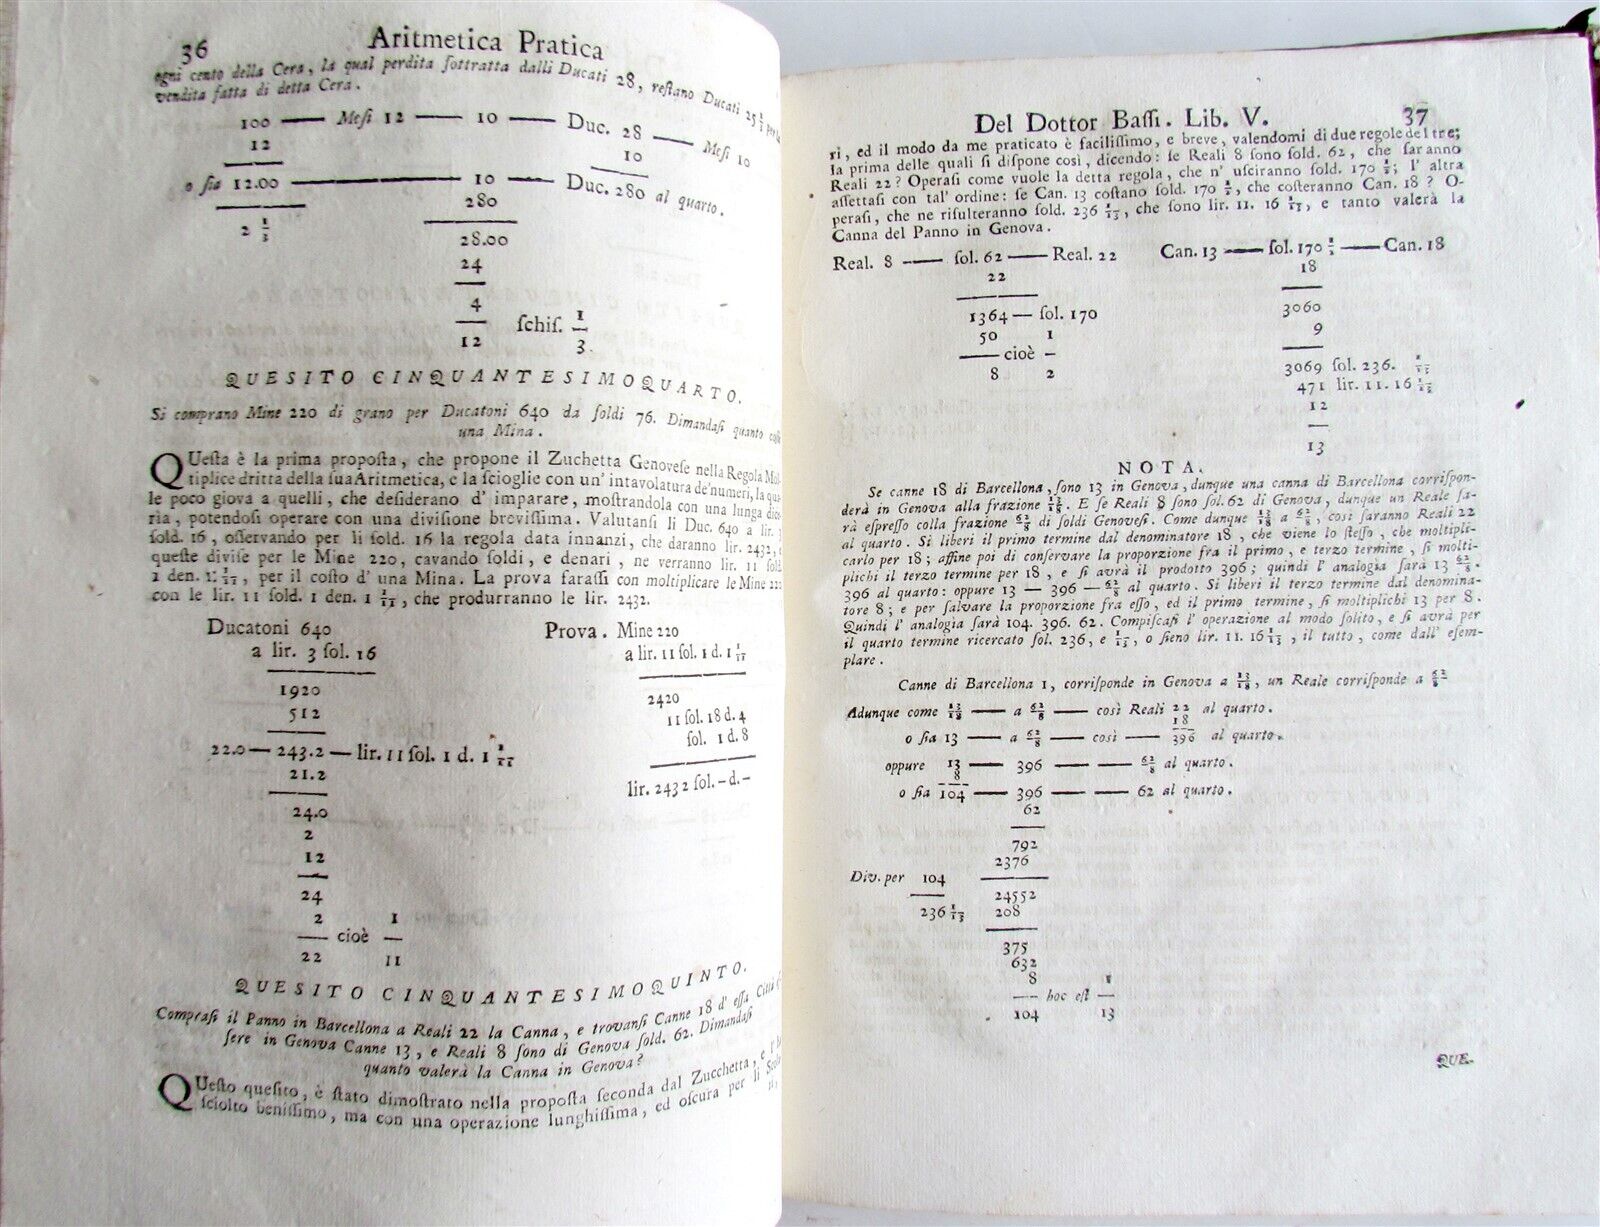 36 Aritmetica Pratica
ogni cento della Cera, la qual perdita ſottratta dalli Ducati 28, reſtano Ducati 25 1/3 per
vendita fatta di detta Cera.
100 — Meſi 12 — 10 — Duc. 28 — Meſi 10
12 10
o ſia 12.00 — 10 — Duc. 280 al quarto.
2 1/3 280
28.00
24
4
12 ſchiſ. 1/3.
QUESITO CINQUANTESIMOQUARTO.
Si comprano Mine 220 di grano per Ducatoni 640 da ſoldi 76. Dimandaſi quanto
una Mina.
QUeſta è la prima propoſta, che propone il Zuchetta Genoveſe nella Regola Mol-
tiplice dritta della ſua Aritmetica, e la ſcioglie con un' intavolatura de' numeri, la qua-
le poco giova a quelli, che deſiderano d' imparare, moſtrandola con una lunga
ria, potendoſi operare con una diviſione breviſſima. Valutanſi li Duc. 640 a lir. 3
ſold. 16, oſſervando per li ſold. 16 la regola data innanzi, che daranno lir. 2432,
queſte diviſe per le Mine 220, cavando ſoldi, e denari, ne verranno lir. 11 ſold.
1 den. 1 1/11, per il coſto d' una Mina. La prova faraſſi con moltiplicare le Mine 220
con le lir. 11 ſold. 1 den. 1 1/11, che produrranno le lir. 2432.
Ducatoni 640 Prova. Mine 220
a lir. 3 ſol. 16 a lir. 11 ſol. 1 d. 1 1/11
1920 2420
512 11 ſol. 18 d. 4
22.0 — 243.2 — lir. 11 ſol. 1 d. 1 1/11 ſol. 1 d. 8
21.2 lir. 2432 ſol. – d. –
24.0
2
12
24
2 1
— cioè —
22 11
QUESITO CINQUANTESIMOQUINTO.
Compraſi il Panno in Barcellona a Reali 22 la Canna, e trovanſi Canne 18 d' eſſa Città
ſere in Genova Canne 13, e Reali 8 ſono di Genova ſold. 62. Dimandaſi
quanto valerà la Canna in Genova?
QUeſto queſito, è ſtato dimoſtrato nella propoſta ſeconda dal Zucchetta, e
ſciolto beniſſimo, ma con una operazione lunghiſſima, ed oſcura per li
Del Dottor Baſſi. Lib. V. 37
ri, ed il modo da me praticato è faciliſſimo, e breve, valendomi di due regole del tre;
la prima delle quali ſi diſpone così, dicendo: ſe Reali 8 ſono ſold. 62, che ſaranno
Reali 22? Operaſi come vuole la detta regola, che n' uſciranno ſold. 170 1/2; l' altra
aſſettaſi con tal' ordine: ſe Can. 13 coſtano ſold. 170 1/2, che coſteranno Can. 18? O-
peraſi, che ne riſulteranno ſold. 236 1/13, che ſono lir. 11. 16 1/13, e tanto valerà la
Canna del Panno in Genova.
Real. 8 — ſol. 62 — Real. 22 Can. 13 — ſol. 170 1/2 — Can. 18
22 18
1364 — ſol. 170 3060
50 1 9
— cioè — 3069 ſol. 236. 1/13
8 2 471 lir. 11. 16 1/13
12
—
13
NOTA.
Se canne 18 di Barcellona, ſono 13 in Genova, dunque una canna di Barcellona corriſpon-
derà in Genova alla frazione 13/18. E ſe Reali 8 ſono ſol. 62 di Genova, dunque un Reale ſa-
rà eſpreſſo colla frazione 62/8 di ſoldi Genoveſi. Come dunque 13/18 a 62/8, così ſaranno Reali 22
al quarto. Si liberi il primo termine dal denominatore 18, che viene lo ſteſſo, che moltipli-
carlo per 18; affine poi di conſervare la proporzione fra il primo, e terzo termine, ſi molti-
plichi il terzo termine per 18, e ſi avrà il prodotto 396; quindi l' analogia ſarà 13 62/8.
396 al quarto: oppure 13 — 396 — 62/8 al quarto. Si liberi il terzo termine dal denomina-
tore 8; e per ſalvare la proporzione fra eſſo, ed il primo termine, ſi moltiplichi 13 per 8.
Quindi l' analogia ſarà 104. 396. 62. Compiſcaſi l' operazione al modo ſolito, e ſi avrà per
il quarto termine ricercato ſol. 236, e 1/13, o ſieno lir. 11. 16 1/13, il tutto, come dall' eſem-
plare.
Canne di Barcellona 1, corriſponde in Genova a 13/18, un Reale corriſponde a 62/8
Adunque come 13/18 — a 62/8 — così Reali 22 al quarto.
18
o ſia 13 — a 62/8 — così — 396 al quarto.
oppure 13 — 396 — — 62/8 al quarto.
8
o ſia 104 — 396 — — 62 al quarto.
62
792
2376
Div. per 104
24552
236 1/13 208
375
632
8 1
— hoc eſt —
104 13
QUE-